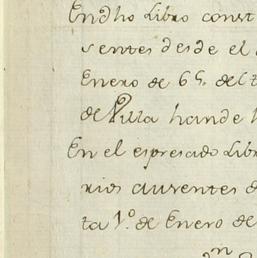 En dho Libro const
sentes desde el
Enero de 65. del t
de Villa hande h
En el espresado Lib
rios ausentes d
ta 1.º de Enero de